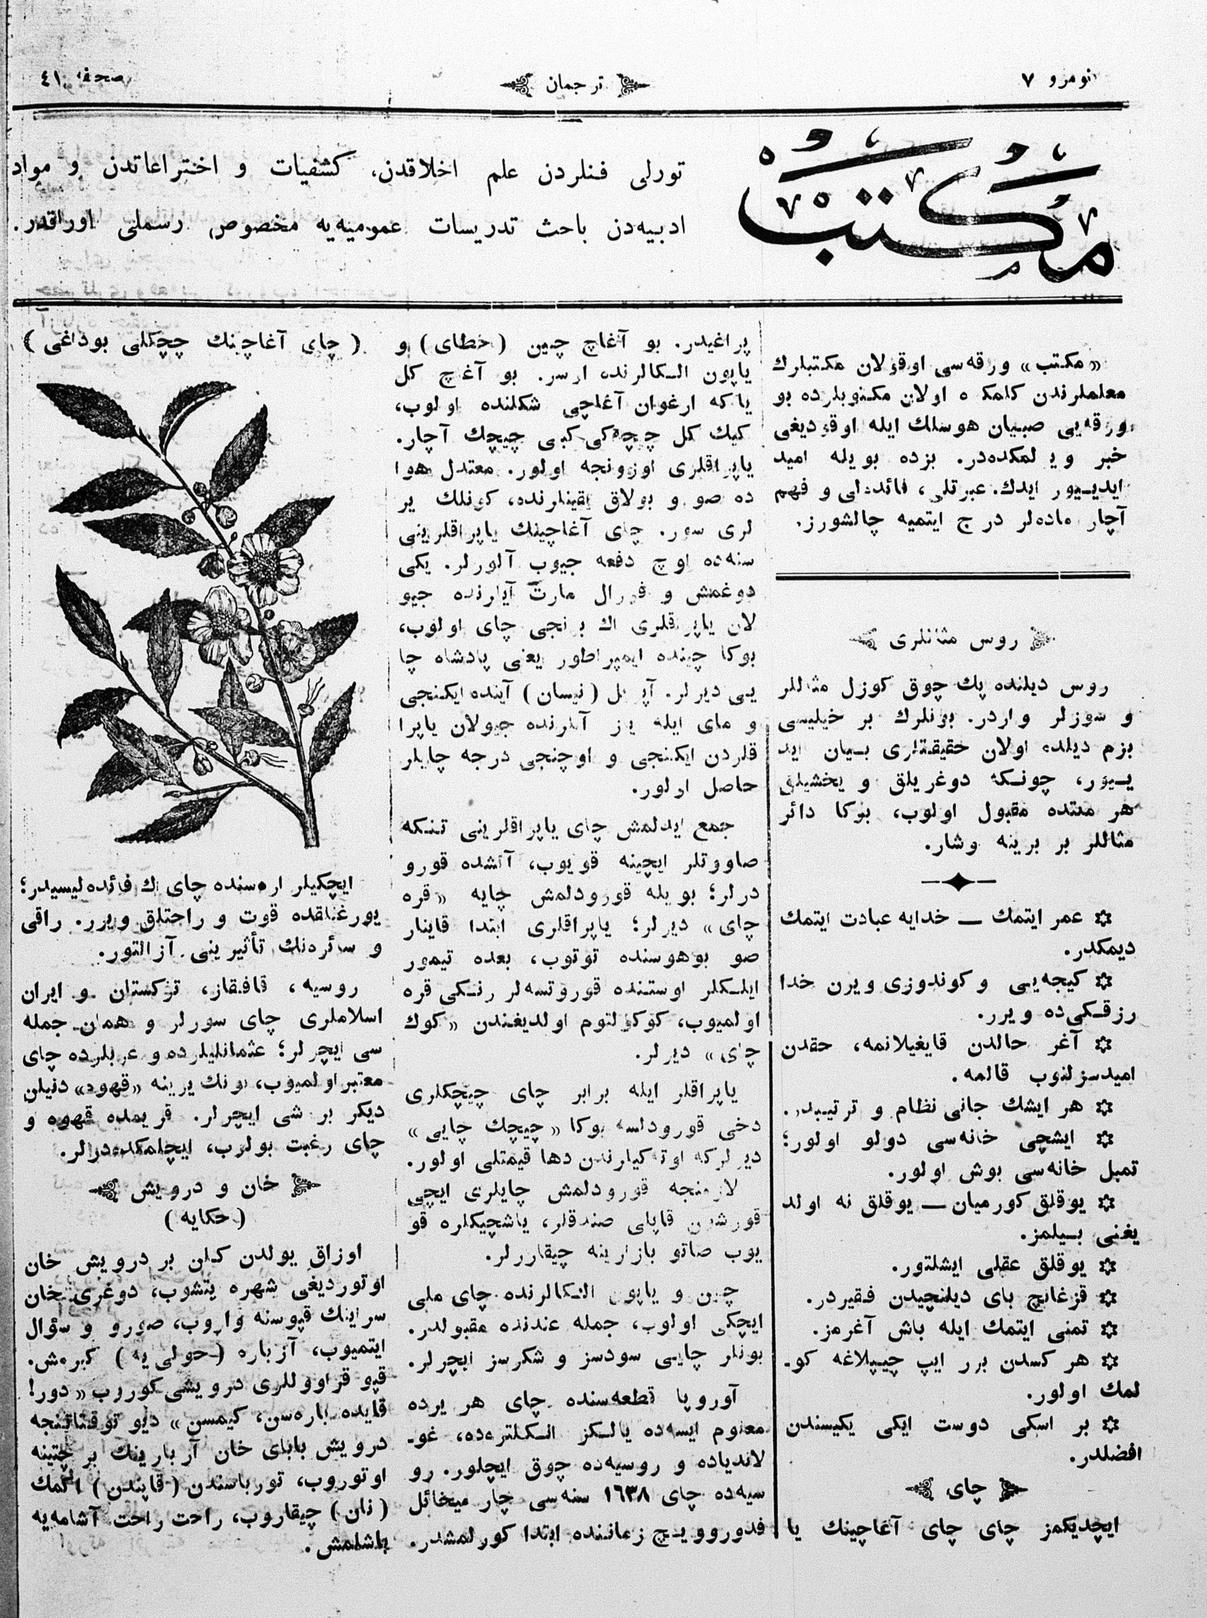 نومرو ٧
ترجمان
صحفه ٤١
مكتب
تورلى فنلردن علم اخلاقدن، كشفيات و اختراعاتدن و مواد
ادبيه‌دن باحث تدريسات عموميه‌يه مخصوص رسملى اوراقدر.
«مكتب» ورقه‌سى اوقولان مكتبلرك
معلملرندن كلمكده اولان مكتوبلرده بو
ورقه‌يى صبيان هوسلك ايله اوقوديغى
خبر ويرلمكده‌در. بزده بويله اميد
ايدييور ايدك. عبرتلى، فائده‌لى و فهم
آچار ماده‌لر درج ايتميه چالشورز.
روس مثاللرى
روس ديلنده پك چوق كوزل مثاللر
و سوزلر واردر. بونلرك بر خيليسى
بزم ديلده اولان حقيقتلرى بيان ايد
ييور، چونكه دوغريلق و يخشيلق
هر ملتده مقبول اولوب، بوكا دائر
مثاللر بر برينه وشار.
✡ عمر ايتمك — خدايه عبادت ايتمك
ديمكدر.
✡ كيجه‌يى و كوندوزى ويرن خدا
رزقكى‌ده ويرر.
✡ آغر حالدن قايغيلانمه، حقدن
اميدسزلنوب قالمه.
✡ هر ايشك جانى نظام و ترتيبدر.
✡ ايشچى خانه‌سى دولو اولور؛
تمبل خانه‌سى بوش اولور.
✡ يوقلق كورميان — يوقلق نه اولد
يغنى بيلمز.
✡ يوقلق عقلى ايشلتور.
✡ قزغانچ باى ديلنچيدن فقيردر.
✡ تمنى ايتمك ايله باش آغرمز.
✡ هر كسدن برر ايپ چيپلاغه كو
لمك اولور.
✡ بر اسكى دوست ايكى يكيسندن
افضلدر.
چاى
ايچديكمز چاى چاى آغاچينك يا
پراغيدر. بو آغاچ چين (خطاى) و
ياپون الكالرنده اوسر. بو آغچ كل
ياكه ارغوان آغاچى شكلنده اولوب،
كيك كل چچه‌كى كبى چيچك آچار.
ياپراقلرى اوزونجه اولور. معتدل هوا
ده صو و بولاق يقينلرنده، كونلك ير
لرى سور. چاى آغاچينك ياپراقلرينى
سنه‌ده اوچ دفعه جيوب آلورلر. يكى
دوغمش و فورال مارت آيارنده جيو
لان ياپراقلرى اك برنجى چاى اولوب،
بوكا چينده ايمپراطور يعنى پادشاه چا
يى ديرلر. آپريل (نيسان) آينده ايكنجى
و ماى ايله ياز آيلرنده جيولان ياپرا
قلردن ايكنجى و اوچنجى درجه چايلر
حاصل اولور.
جمع ايدلمش چاى ياپراقلرينى تنكه
صاووتلر ايچينه قويوب، آتشده قورو
درلر؛ بويله قورودلمش چايه «قره
چاى» ديرلر؛ ياپراقلرى ابتدا قاينار
صو بوهوسنده توتوب، بعده تيمور
ايلكلر اوستنده قوروتسه‌لر رنكى قره
اولميوب، كوكولتوم اولديغندن «كوك
چاى» ديرلر.
ياپراقلر ايله برابر چاى چيچكلرى
دخى قورودلسه بوكا «چيچك چايى»
ديرلركه اوته‌كيلرندن دها قيمتلى اولور.
لازمنجه قورودلمش چايلرى ايچى
قورشون قاپلى صندقلر، ياشچيكلره قو
يوب صاتو بازارينه چيقاررلر.
چين و ياپون الكالرنده چاى ملى
ايچكى اولوب، جمله عندنده مقبولدر.
بونلر چايى سودسز و شكرسز ايچرلر.
آوروپا قطعه‌سنده چاى هر يرده
معلوم ايسه‌ده يالكز انكلتره‌ده، غو
لاندياده و روسيه‌ده چوق ايچلور. رو
سيه‌ده چاى ١٦٣٨ سنه‌سى چار ميخائل
فدوروويچ زماننده ابتدا كورلمشدر.
(چاى آغاچينك چچكلى بوداغى)
ايچكيلر ارەسنده چاى اك فائده‌ليسيدر؛
يورغنلقده قوت و راحتلق ويرر. راقى
و سائره‌نك تأثيرينى آزالتور.
روسيه، قافقاز، تركستان و ايران
اسلاملرى چاى سورلر و همان جمله
سى ايچرلر؛ عثمانليلرده و عربلرده چاى
معتبر اولميوب، بونك يرينه «قهوه» دنيلن
ديكر بر شى ايچرلر. قريمده قهوه و
چاى رغبت بولوب، ايچلمكده‌درلر.
خان و درويش
(حكايه)
اوزاق يولدن كلن بر درويش خان
اوتورديغى شهره يتشوب، دوغرى خان
سراينك قپوسنه واروب، صورو و سؤال
ايتميوب، آزباره (حولى يه) كيرمش.
قپو قراووللرى درويشى كوروب «دور!
قايده بارەسن، كيمسن» ديو توقتاتنجه
درويش باباى خان آزبارينك بر چتينه
اوتوروب، تورباسندن (قاپندن) اكمك
(نان) چيقاروب، راحت راحت آشامه‌يه
باشلمش.